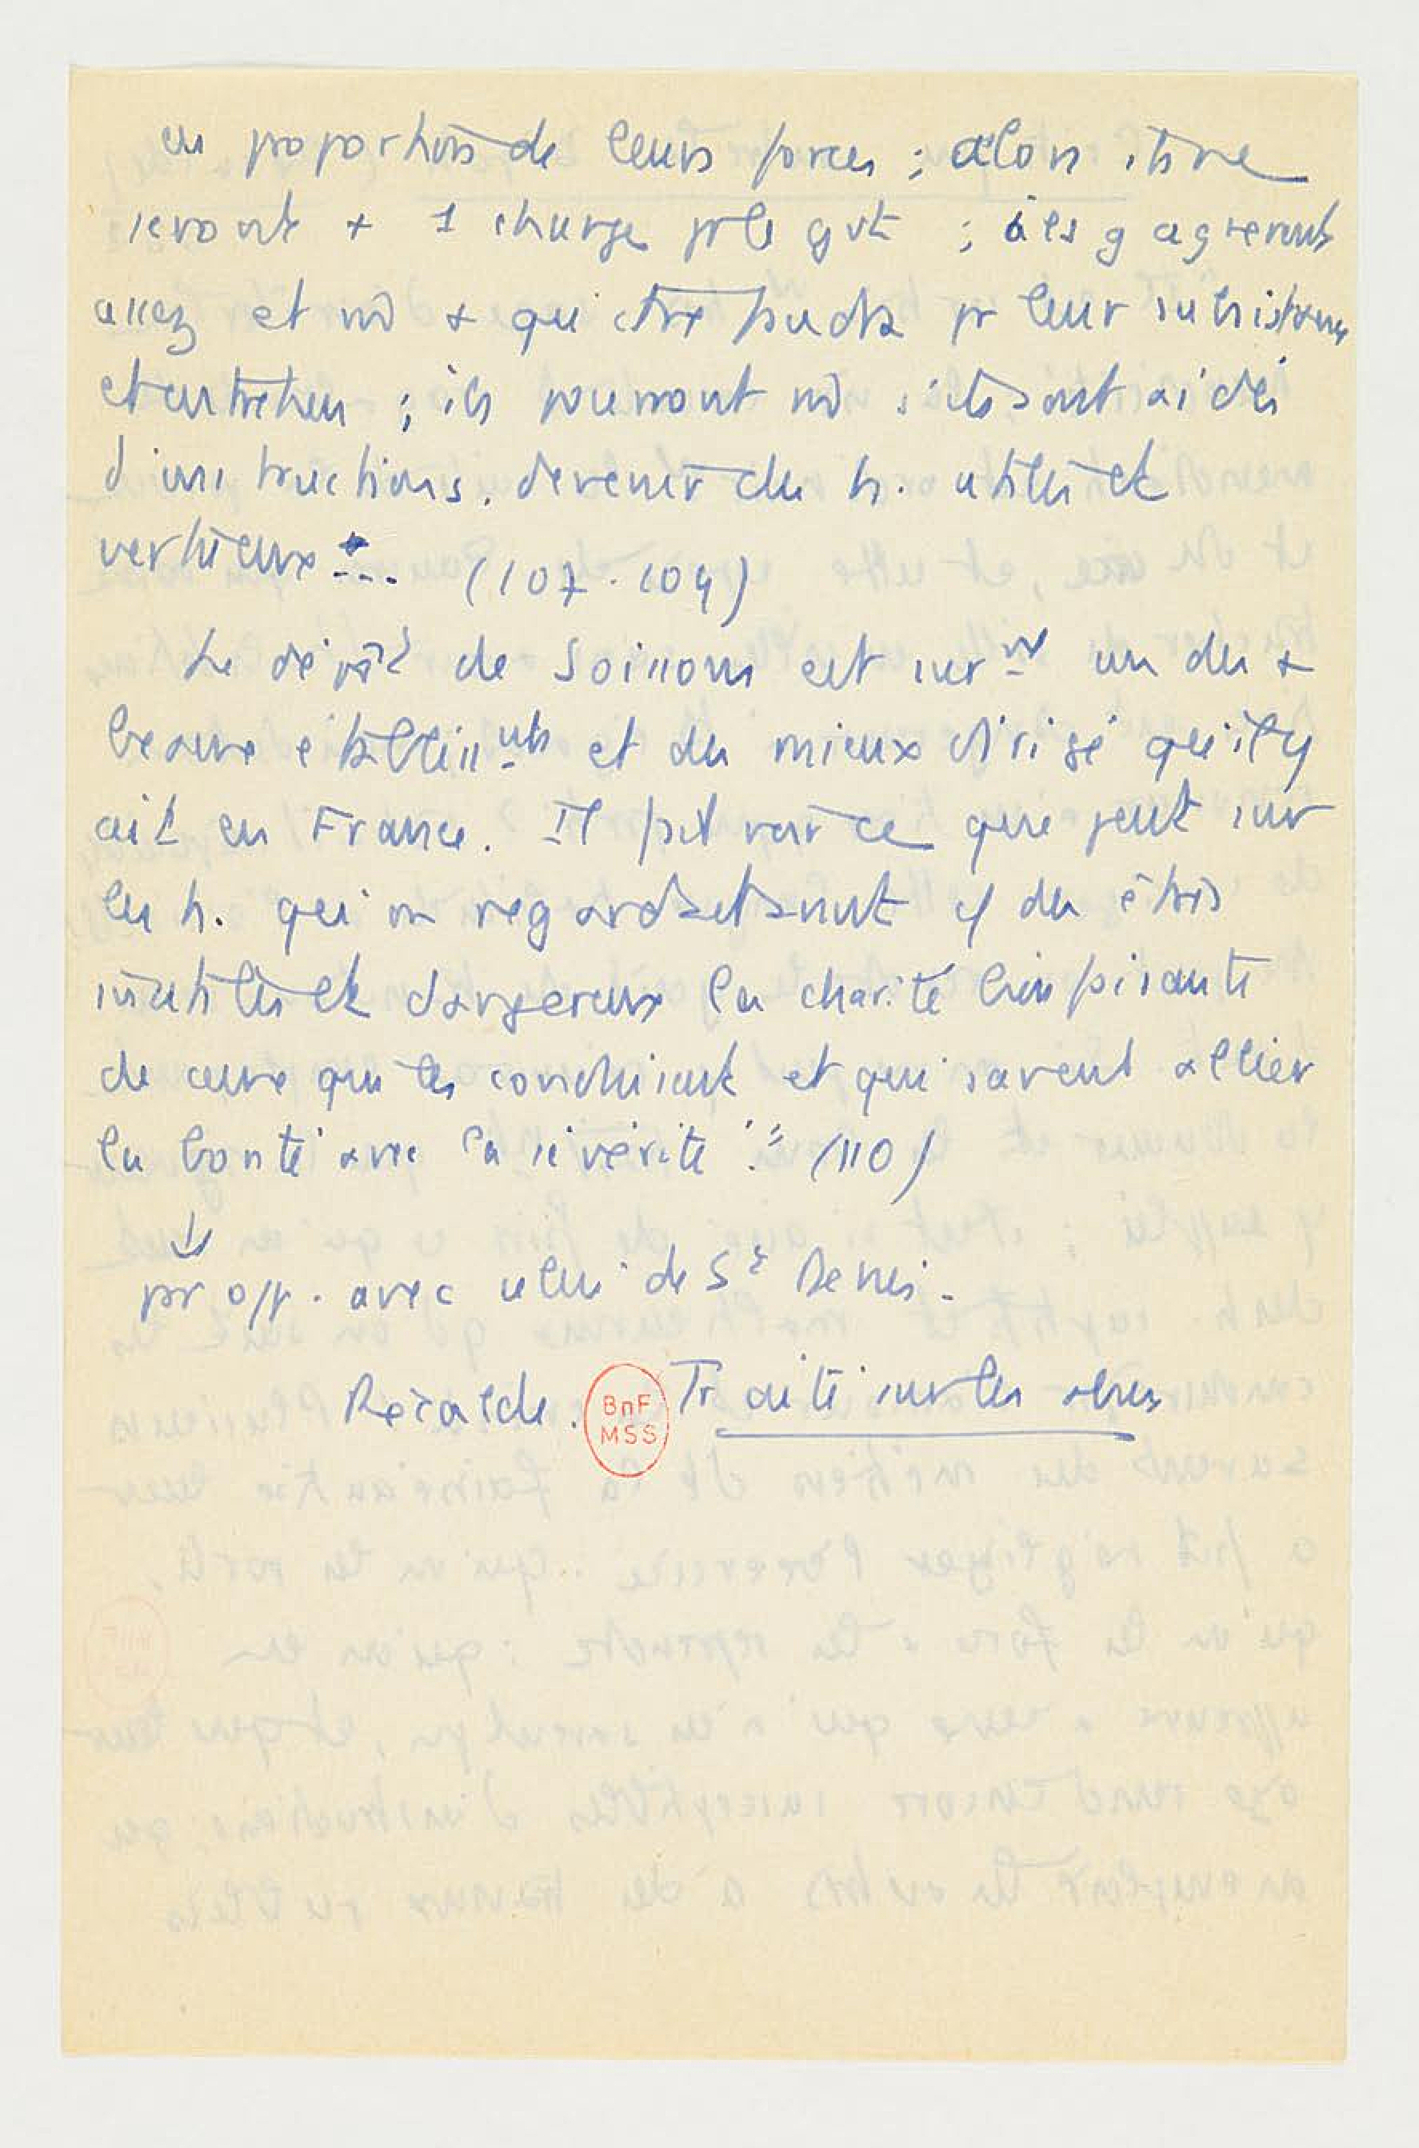 en proportion de leurs forces ; alors ils ne
seront + 1 charge pr le gvt ; ils gagneront
assez et m̂ + qu'il pr leur subsistance
et entretien ; ils pourront m̂ s'ils sont aidés
d'instructions, devenir des h. utiles et
vertueux ... (107-109)
Le dépôt de Soissons est surnt un des +
beaux établissnts et des mieux dirigé qu'il y
ait en France. Il ft voir ce que peut sur
les h. qu'on regardait avant des êtres
inutiles et dangereux la charité
de ceux qui les conduisent et qui savent allier
la bonté avec la sévérité" (110)
↓
pr opp. avec celui de St Denis.
Récalde. Traité sur les abus
BnF
MSS